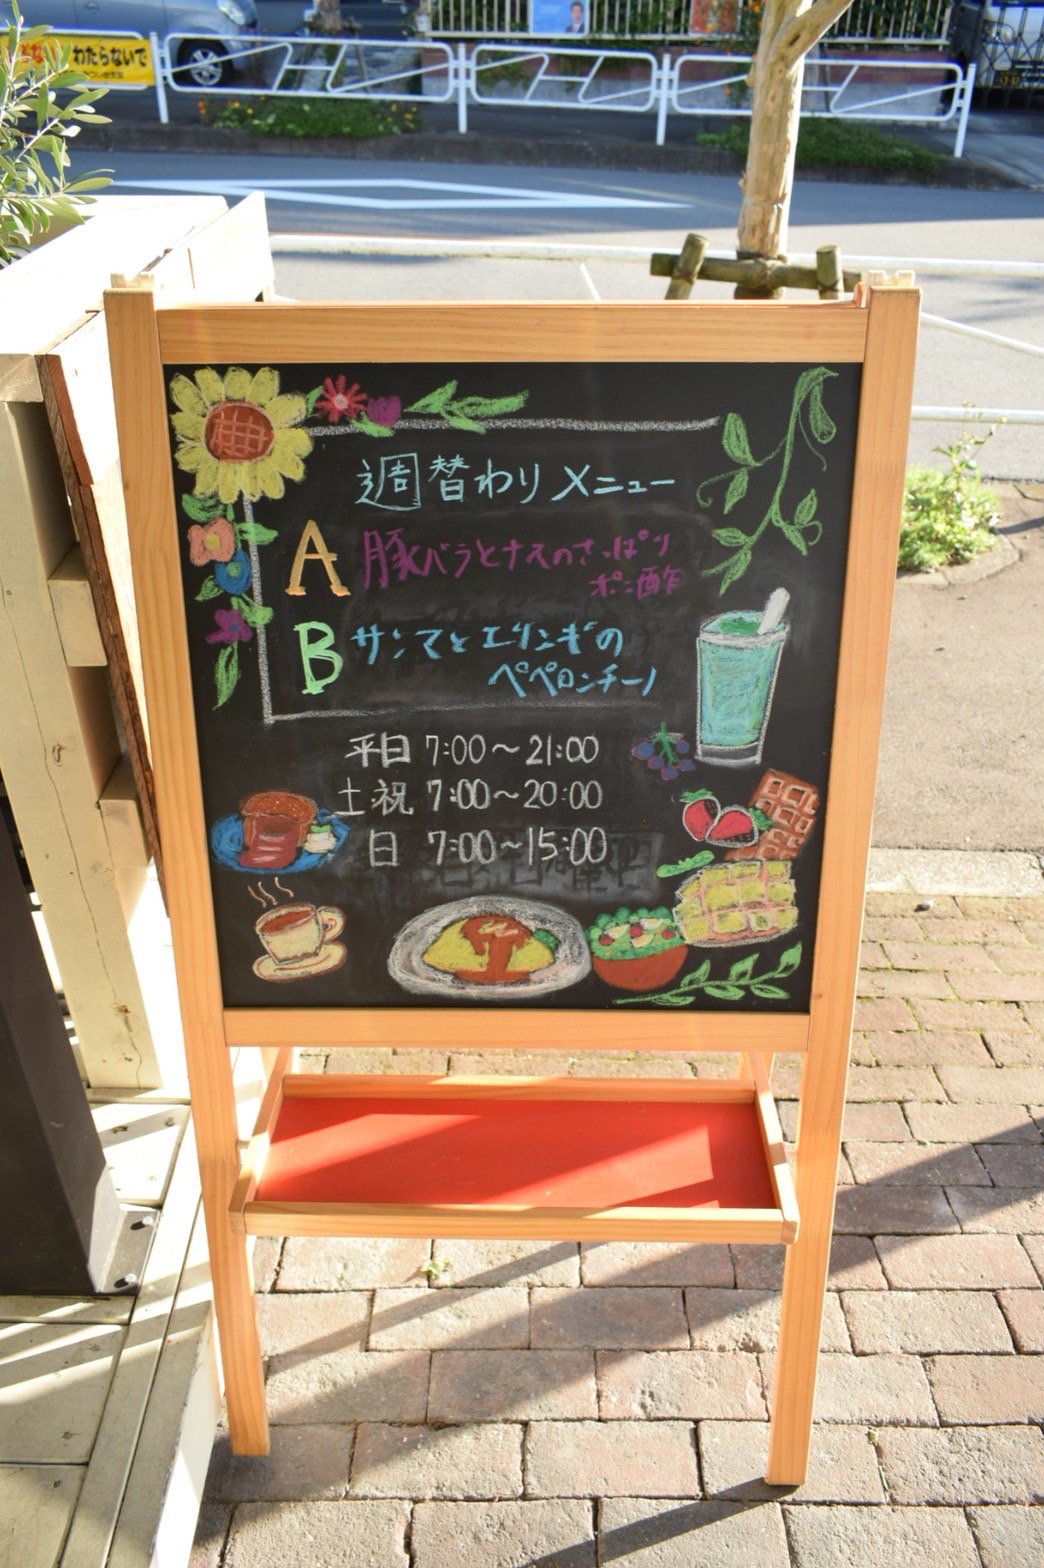 わたらないで
週替わりメニュー
A 豚バラとナスのさっぱり
ポン酢
B サンマとエリンギの
ペペロンチーノ
平日 7:00〜21:00
土祝 7:00〜20:00
日 7:00〜15:00